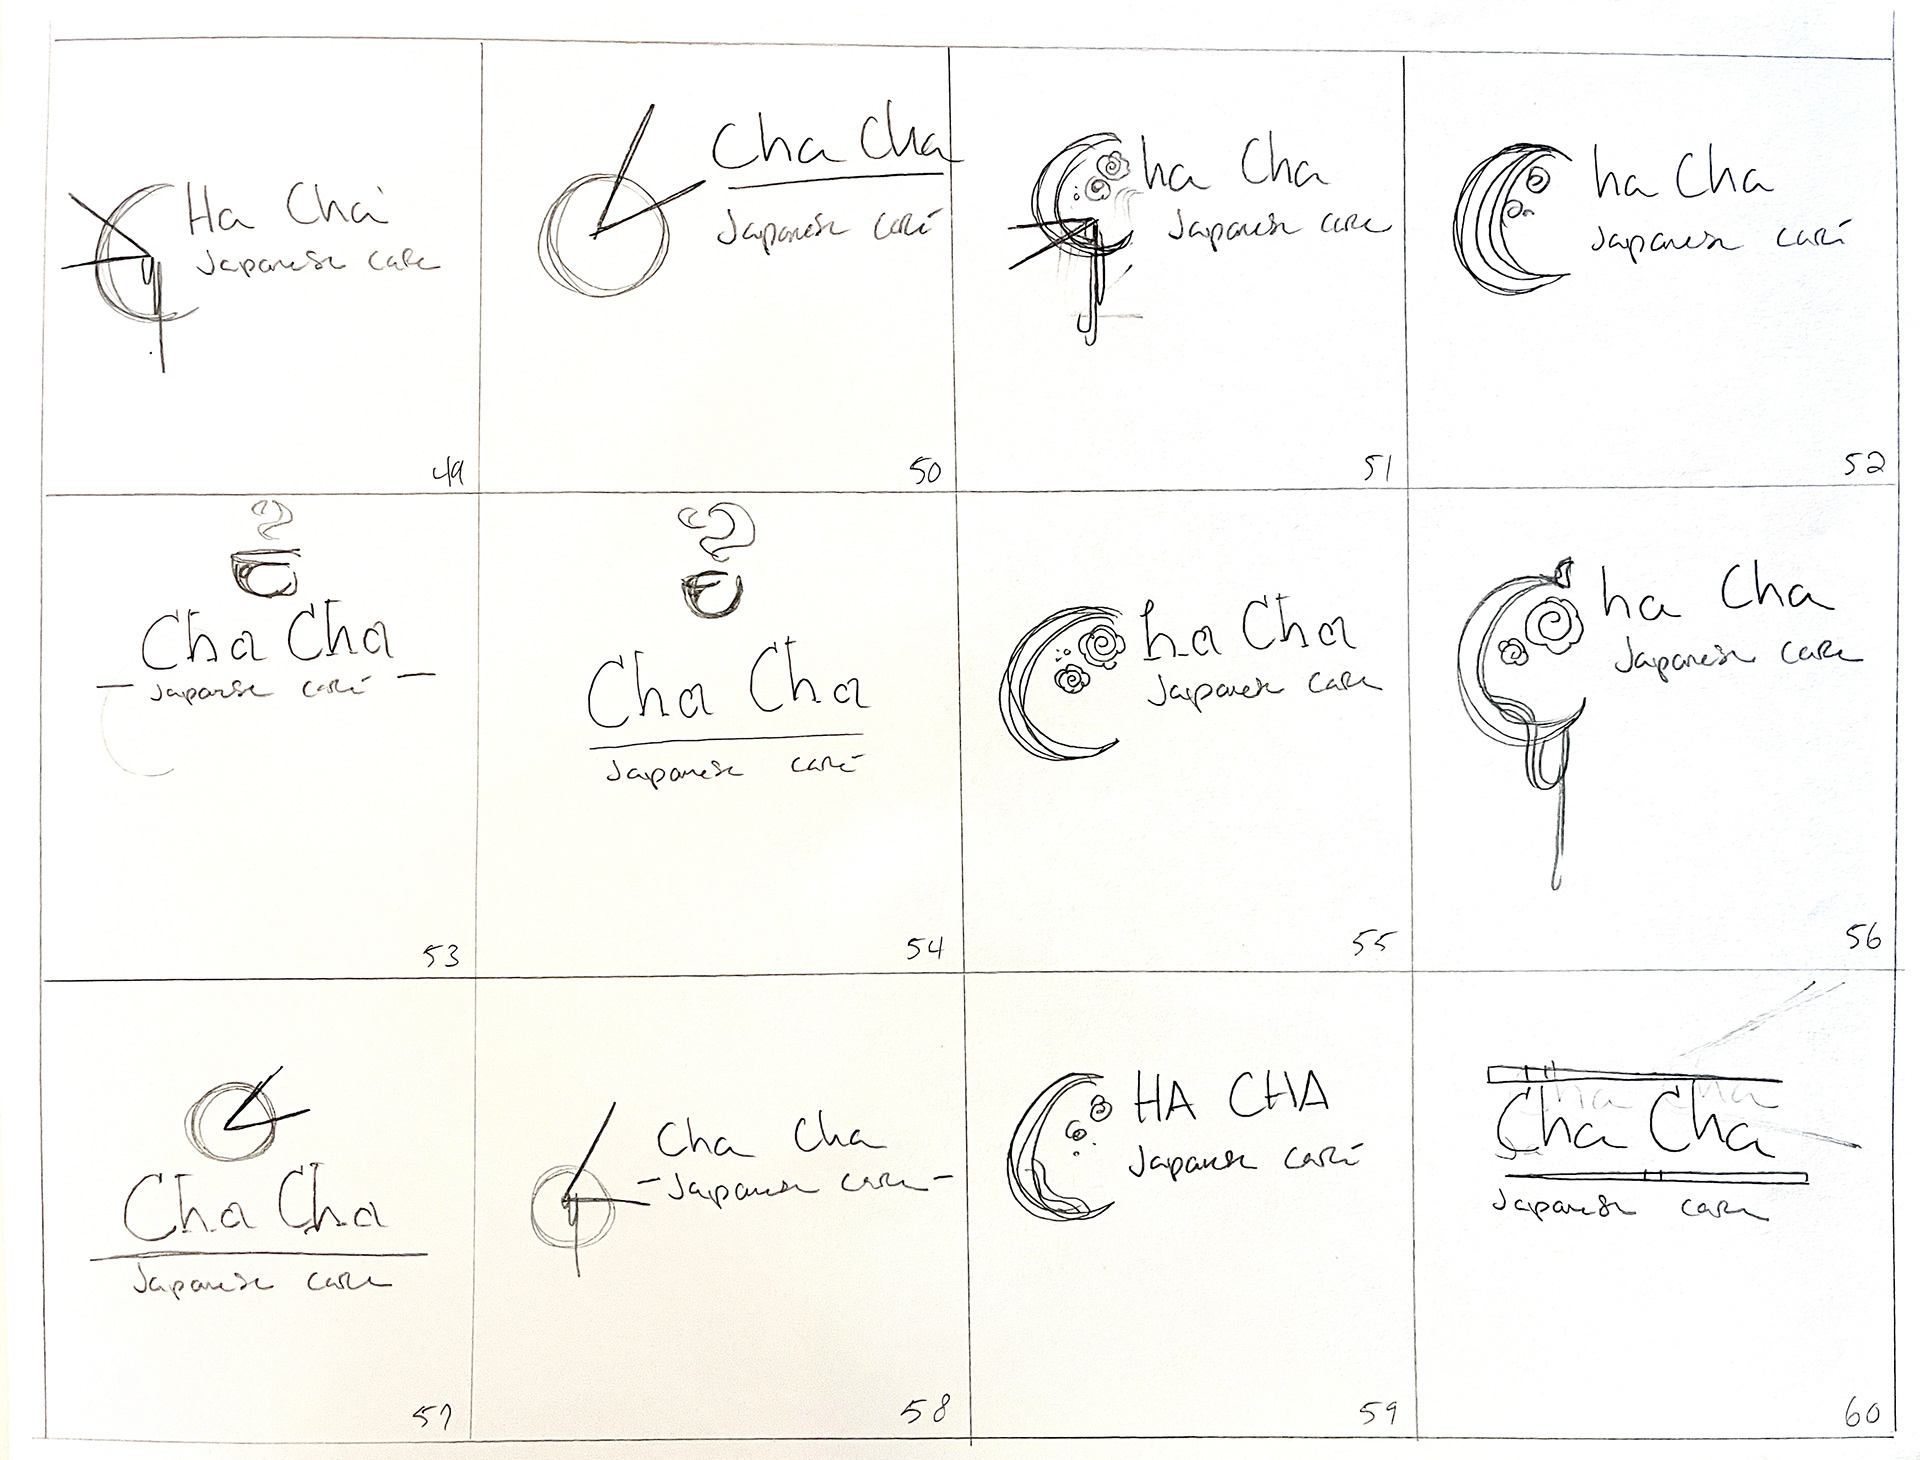 Ha Cha
Japanese cafe
49
Cha Cha
Japanese café
50
ha Cha
Japanese cafe
51
ha Cha
Japanese café
52
Cha Cha
Japanese café
53
Cha Cha
Japanese café
54
ha Cha
Japanese cafe
55
ha Cha
Japanese cafe
56
Cha Cha
Japanese cafe
57
Cha Cha
Japanese cafe
58
HA CHA
Japanese café
59
Cha Cha
Japanese cafe
60